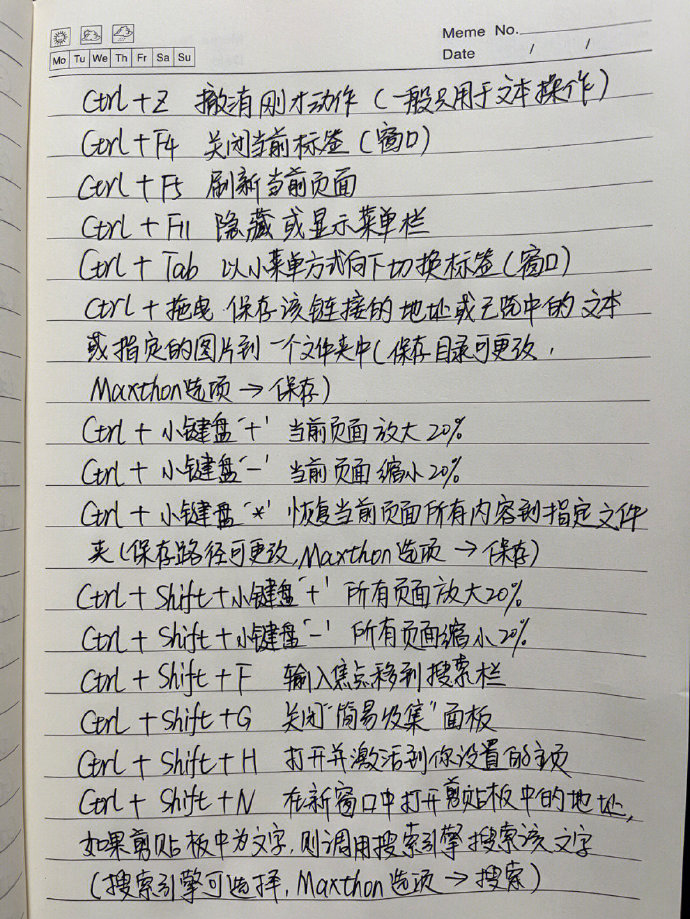 Meme No.
Mo Tu We Th Fr Sa Su
Date / /
Ctrl + Z 撤消刚才动作（一般只用于文本操作）
Ctrl + F4 关闭当前标签（窗口）
Ctrl + F5 刷新当前页面
Ctrl + F11 隐藏或显示菜单栏
Ctrl + Tab 以小菜单方式向下切换标签（窗口）
Ctrl + 拖曳 保存该链接的地址或已选中的文本
或指定的图片到一个文件夹中（保存目录可更改，
Maxthon选项 → 保存）
Ctrl + 小键盘'+' 当前页面放大20%
Ctrl + 小键盘'-' 当前页面缩小20%
Ctrl + 小键盘'*' 恢复当前页面所有内容到指定文件
夹（保存路径可更改,Maxthon选项 → 保存）
Ctrl + Shift + 小键盘'+' 所有页面放大20%
Ctrl + Shift + 小键盘'-' 所有页面缩小20%
Ctrl + Shift + F 输入焦点移到搜索栏
Ctrl + Shift + G 关闭"简易收集"面板
Ctrl + Shift + H 打开并激活到你设置的主页
Ctrl + Shift + N 在新窗口中打开剪贴板中的地址，
如果剪贴板中为文字，则调用搜索引擎搜索该文字
（搜索引擎可选择，Maxthon选项 → 搜索）